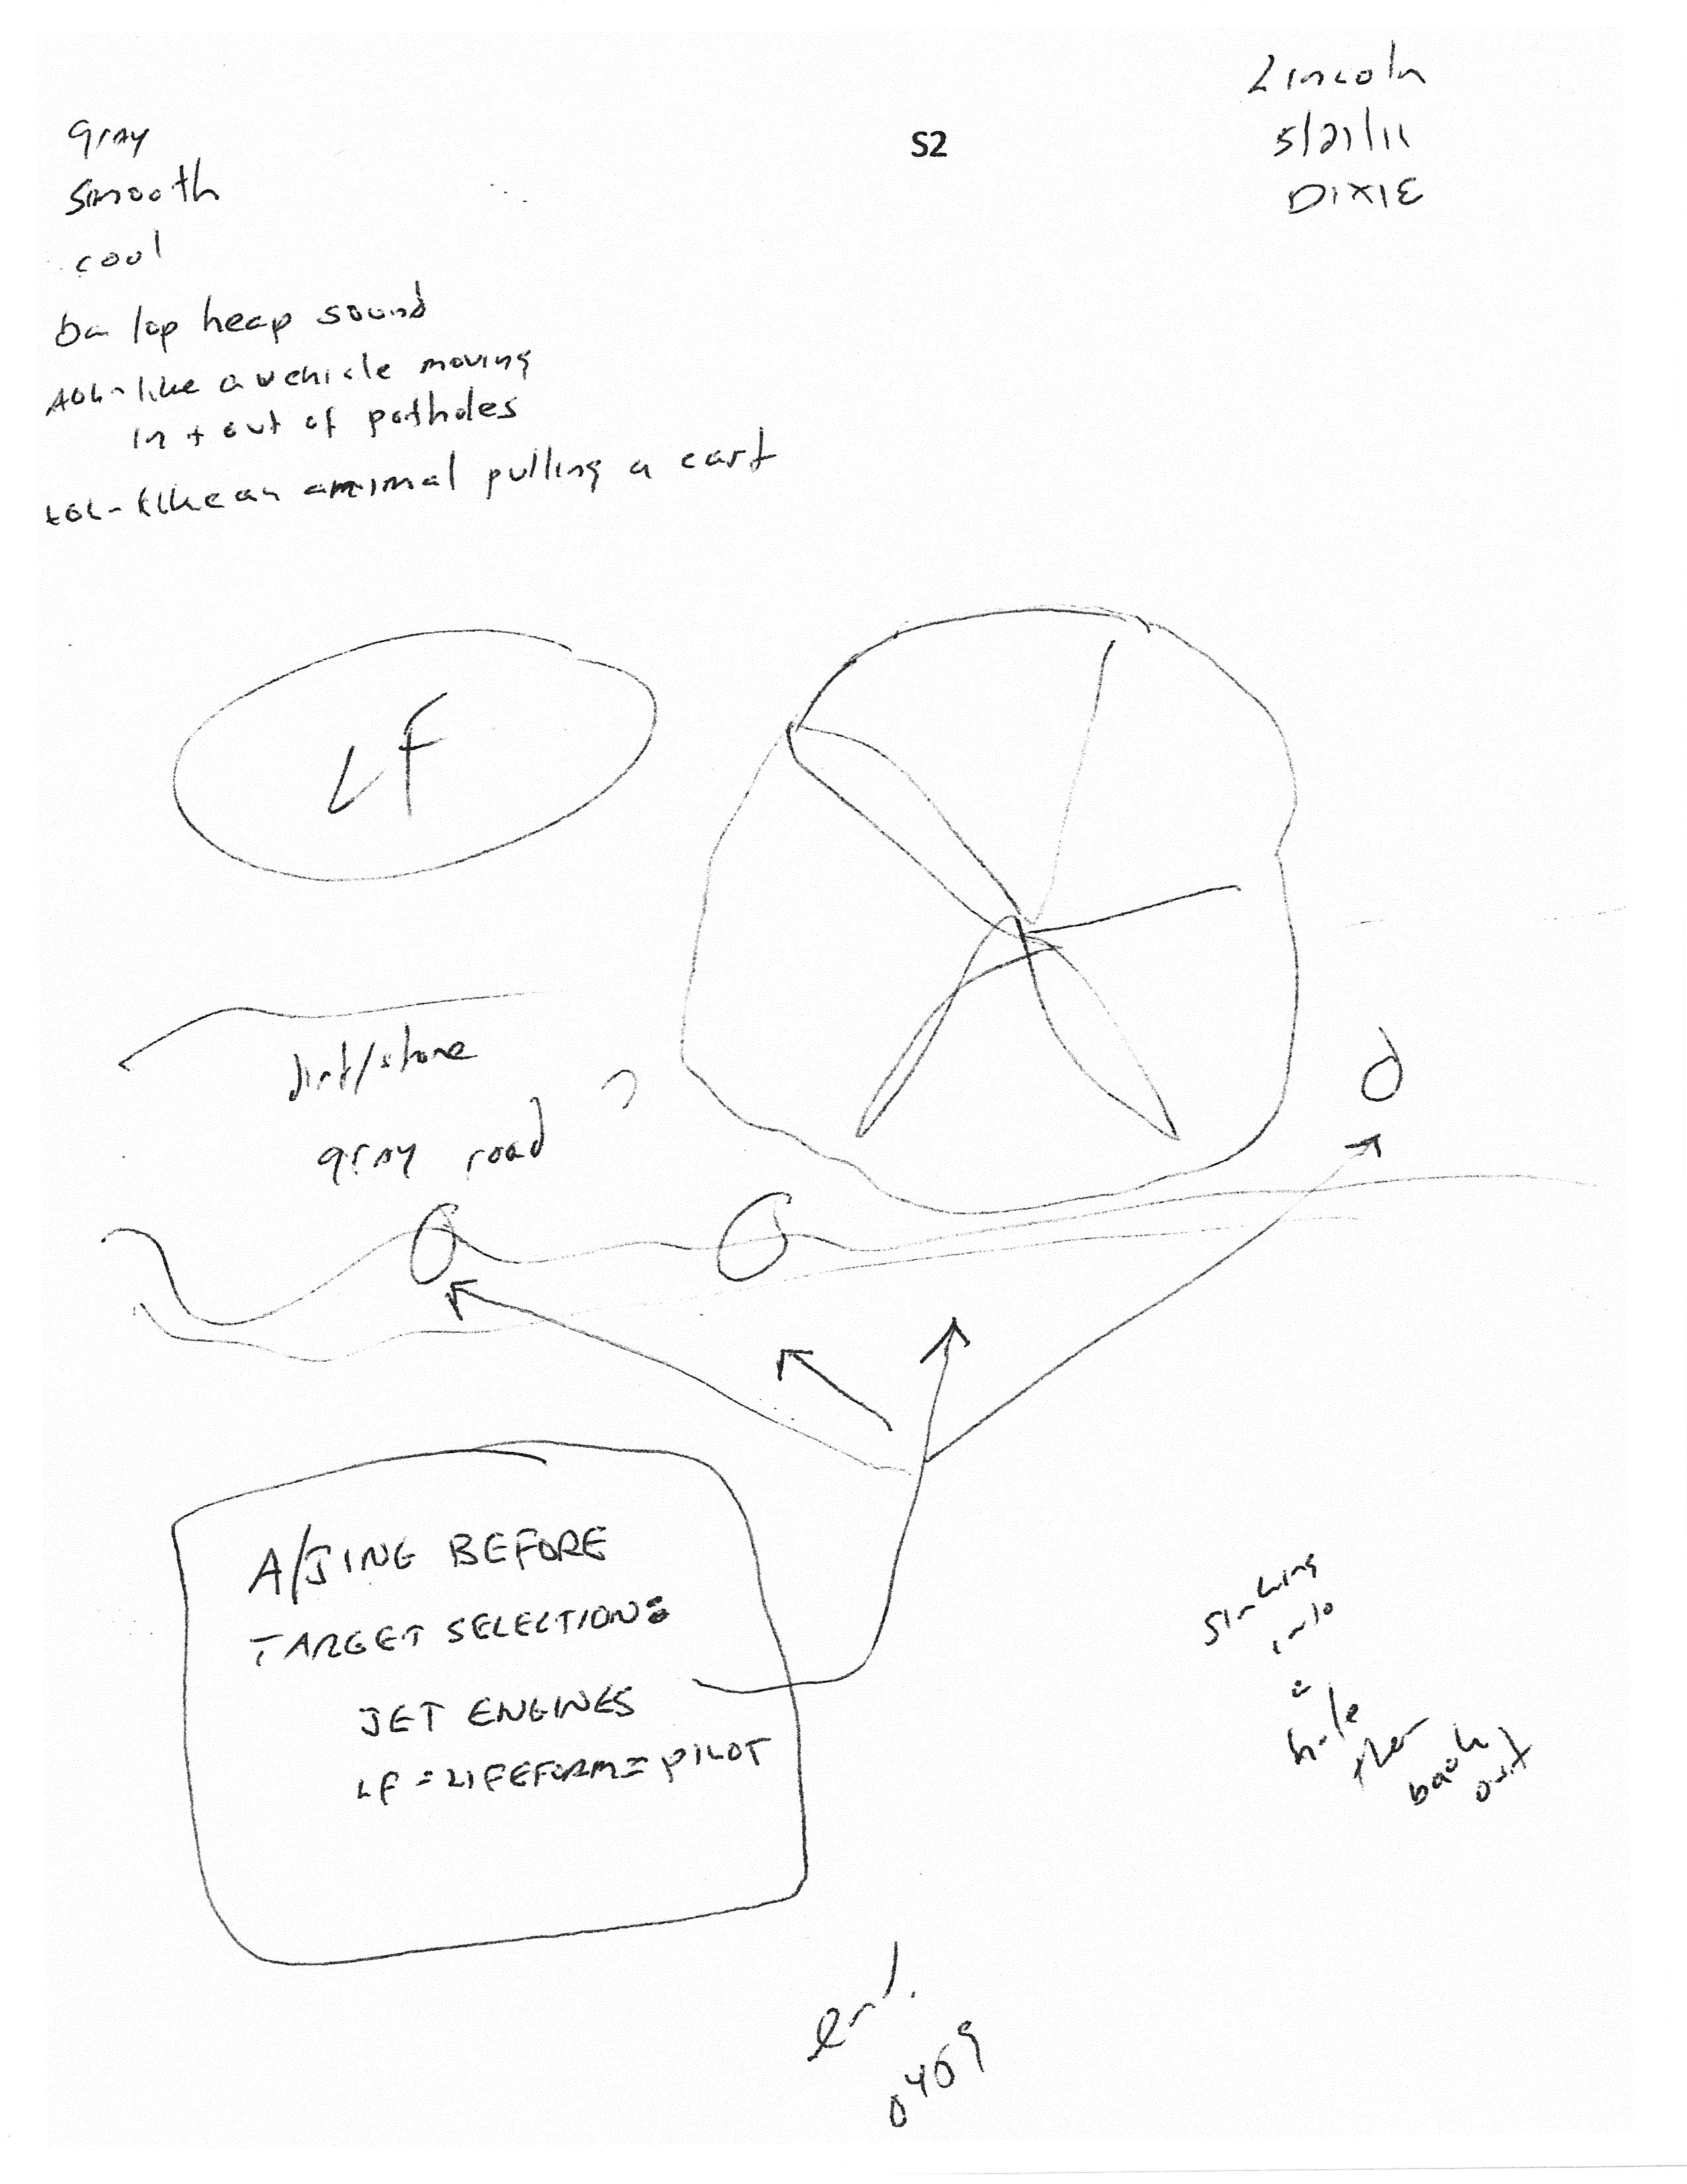 Lincoln
5/21/11
DIXIE
S2
gray
smooth
cool
ba lop heap sound
AOL-like a vehicle moving
in + out of potholes
AOL-like an animal pulling a cart
LF
dirt/stone
gray road
A/JING BEFORE
TARGET SELECTION:
JET ENGINES
LF = LIFEFORM = PILOT
sinking
into
a
hole
then
back
out
end.
0459